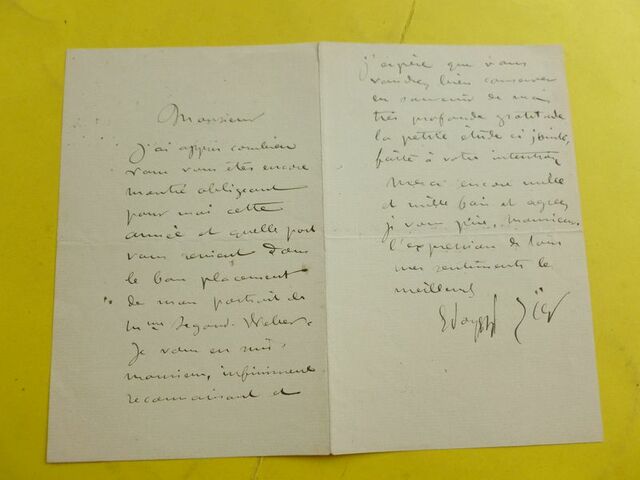 Monsieur
J'ai appris combien
vous vous êtes encore
montré obligeant
pour moi cette
année et quelle part
vous revient dans
le bon placement
de mon portrait de
Mme Segond-Weber.
Je vous en suis,
monsieur, infiniment
reconnaissant et
j'espère que vous
voudrez bien conserver
en souvenir de mais
très profonde gratitude
la petite étude ci jointe,
faite à votre intention
Merci encore mille
et mille fois et agréez
je vous prie, monsieur,
l'expression de tous
mes sentiments les
meilleurs
Edouard Zier